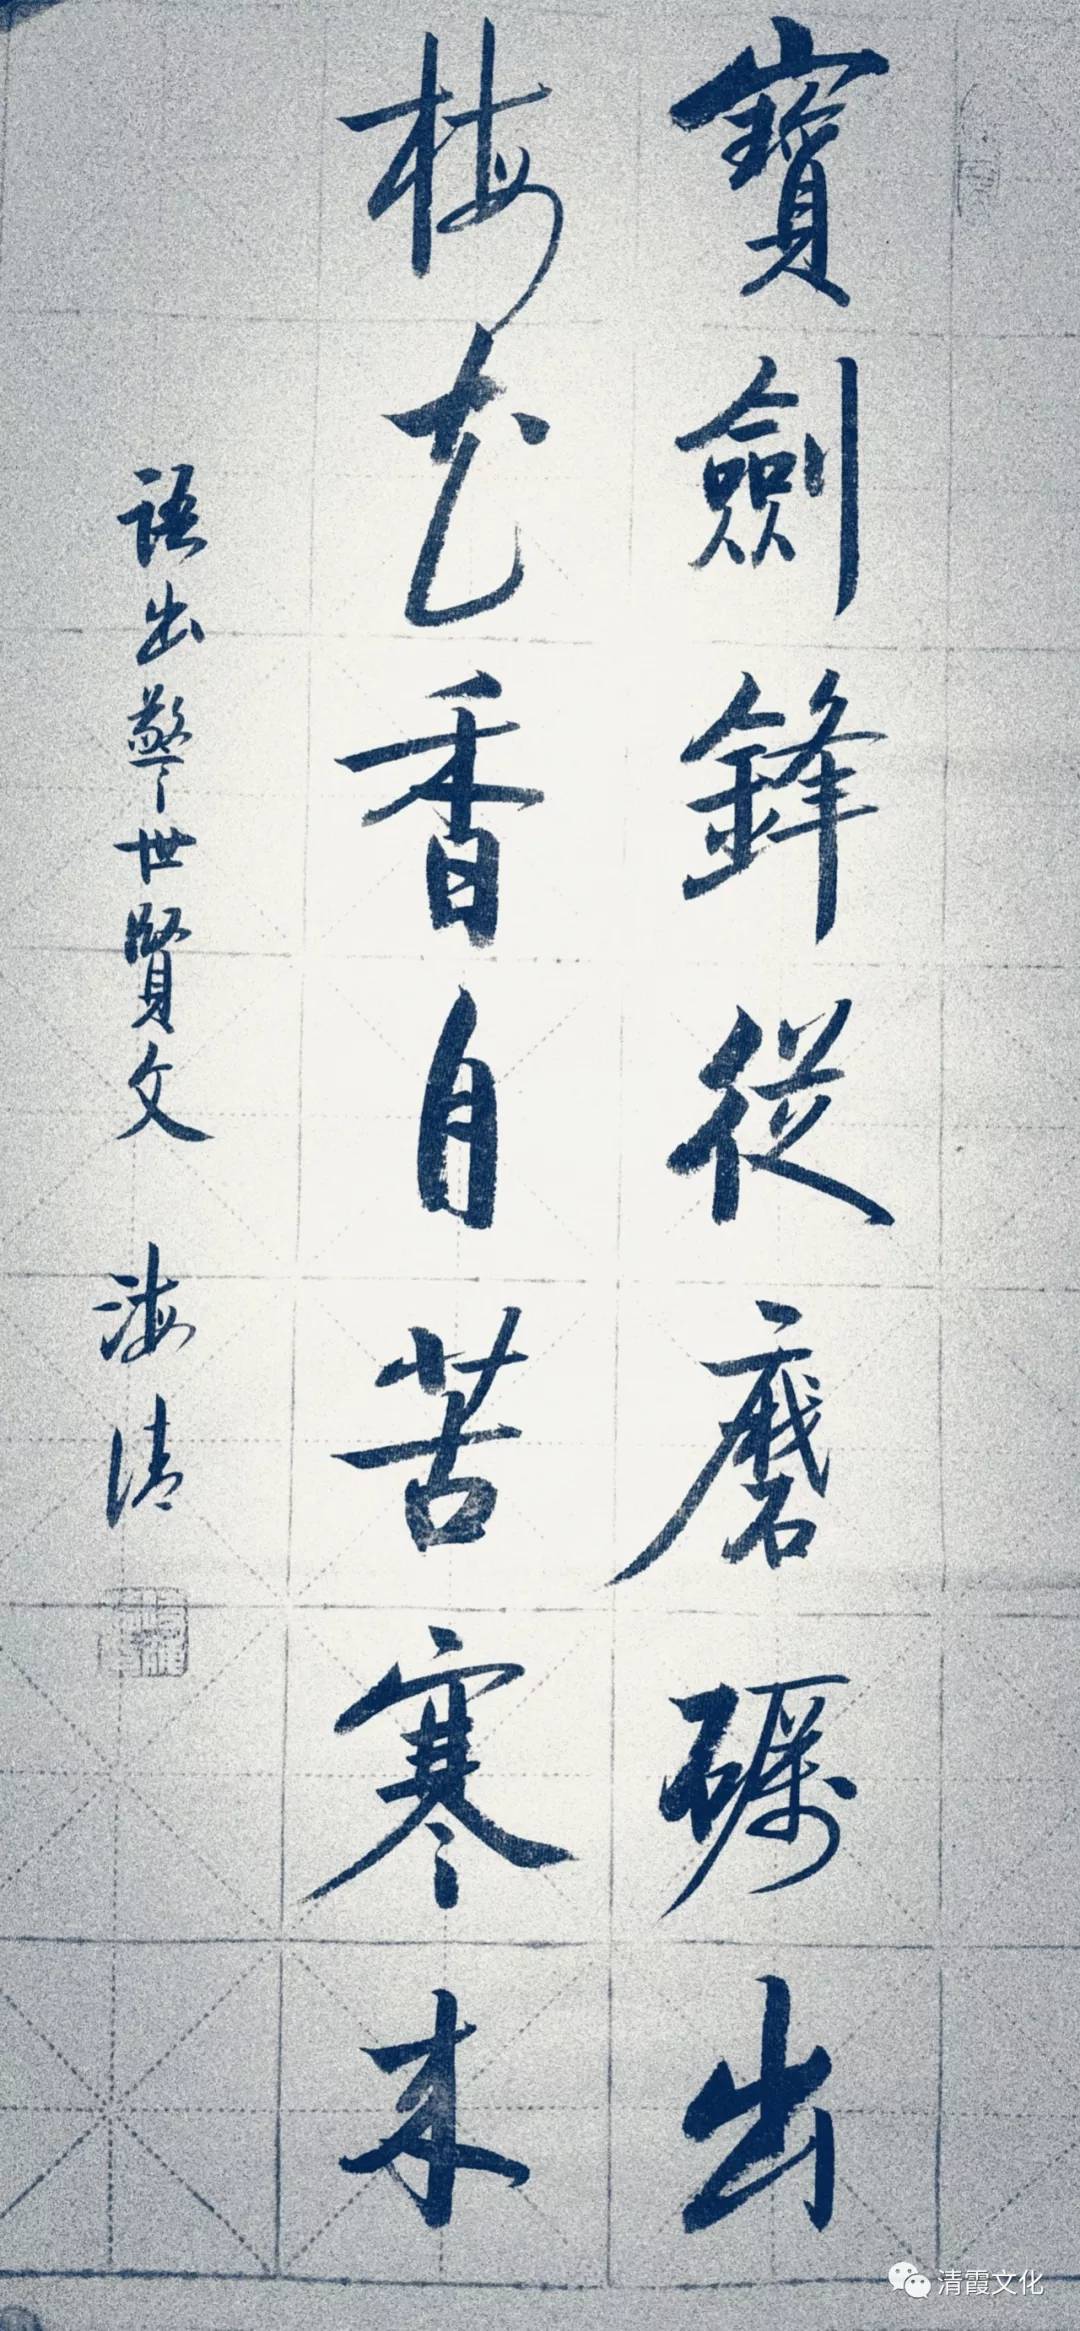 寶劍鋒從磨礪出
梅花香自苦寒來
語出警世賢文 海清
清霞文化